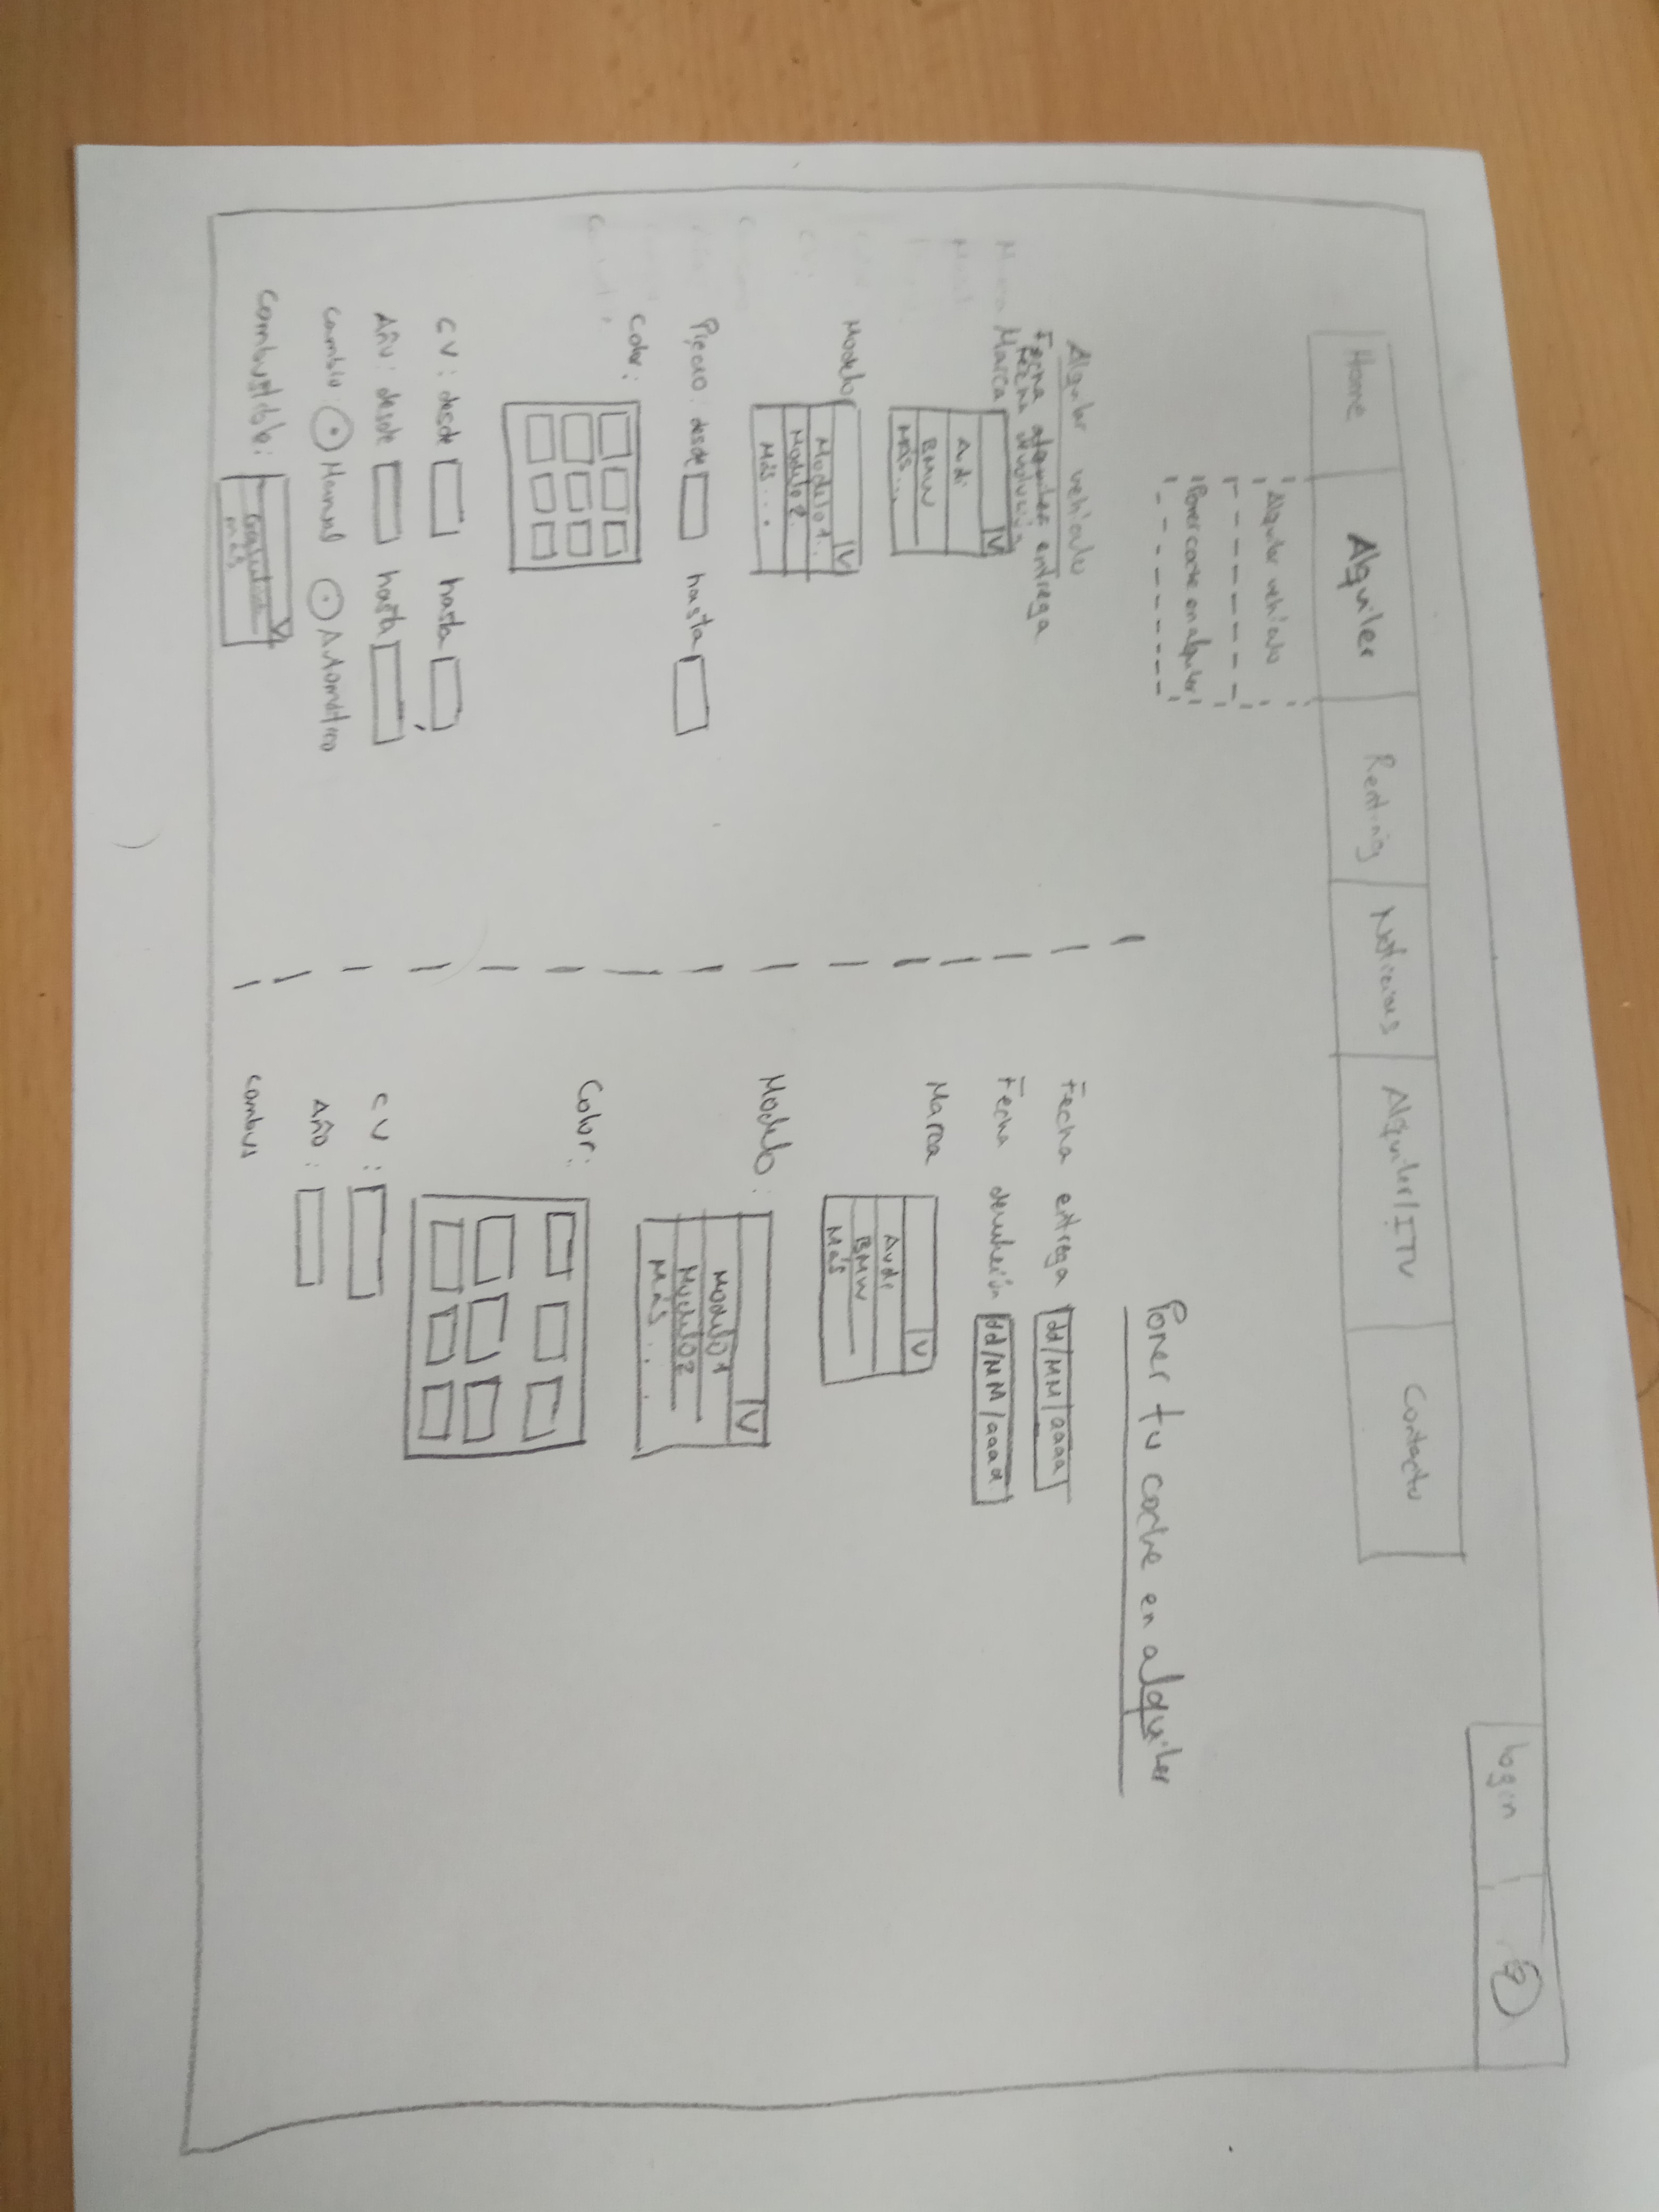 Login ?
Home Alquiler Renting Noticias Alquiler/ITV Contacto
Alquilar vehiculo
Poner coche en alquiler
Alquilar vehiculo
Fecha alquiler entrega
Fecha devolución
Marca V
Adi
BMW
MÁS...
Modelo V
Modelo 1..
Modelo 2.
Más ....
Precio: desde hasta
Color:
CV: desde hasta
Año: desde hasta
Cambio: Manual Automático
Combustible: V
más
Poner tu coche en alquiler
Fecha entrega dd/MM/aaaa
Fecha devolución dd/MM/aaaa
Marca V
Audi
BMW
Más
Modelo: V
Modelo 1
Modelo 2
Más ...
Color:
CV:
Año:
Combus